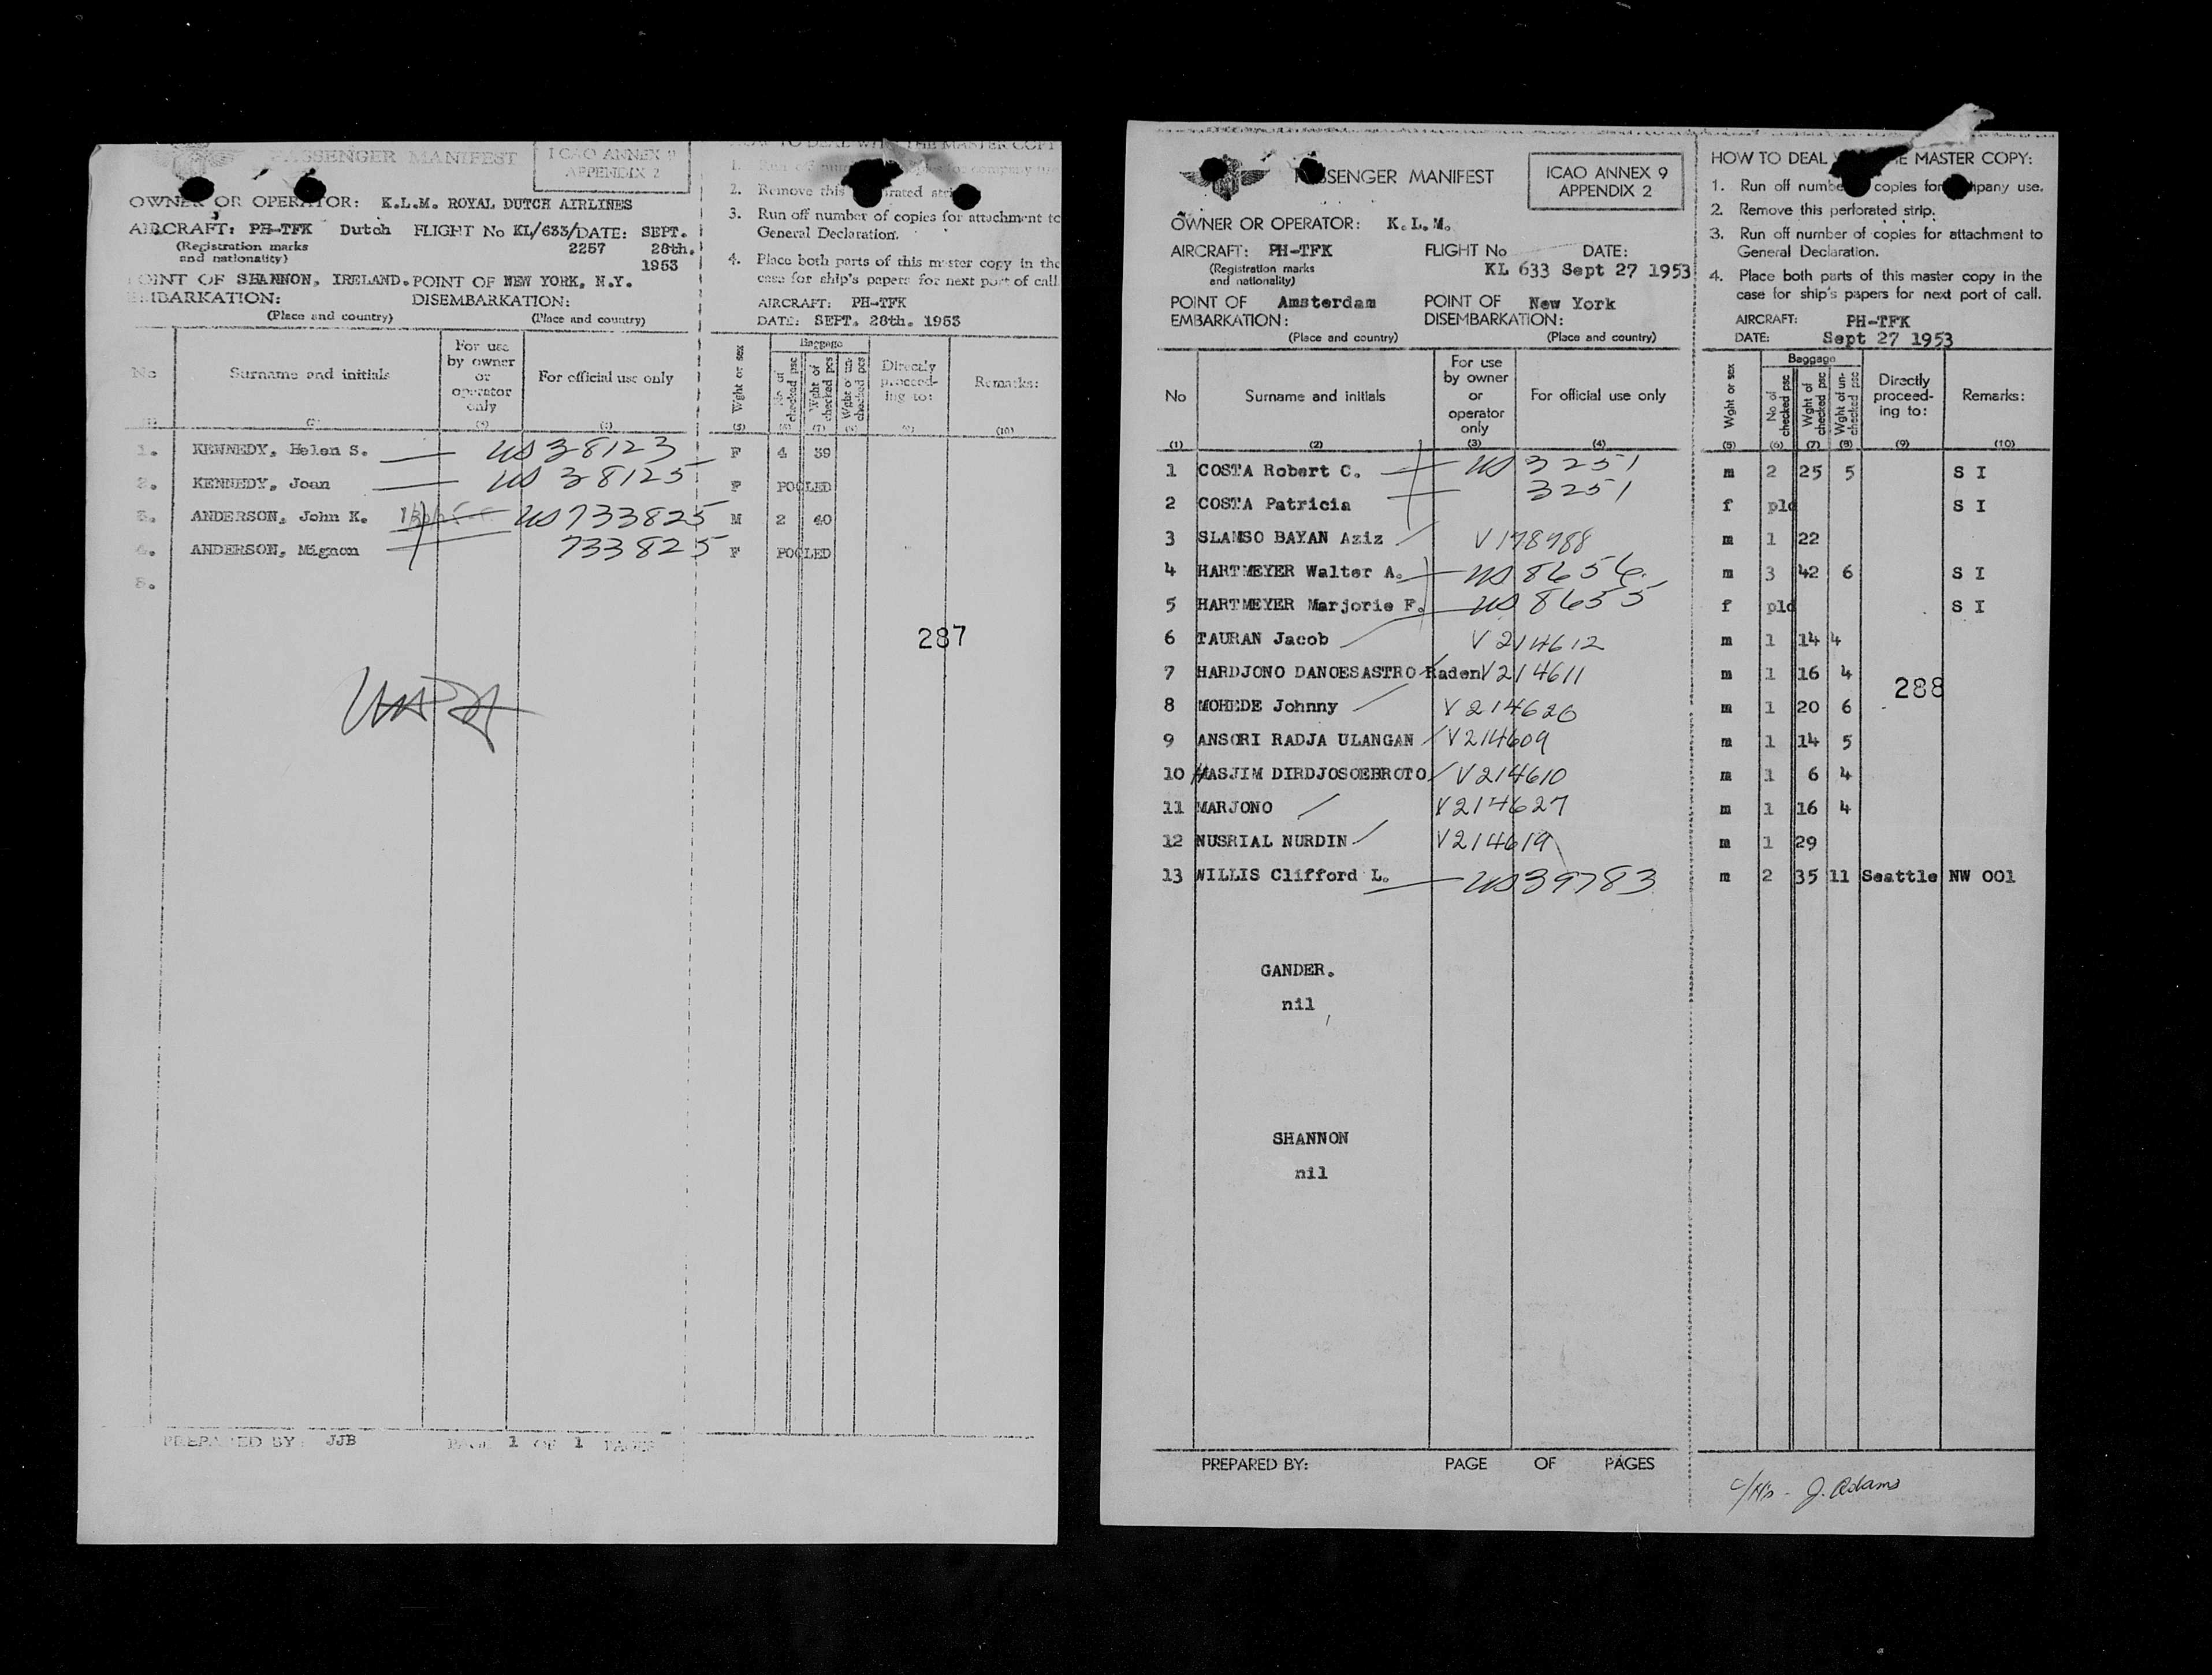 PASSENGER MANIFEST
ICAO ANNEX 9
APPENDIX 2
OWNER OR OPERATOR: K.L.M. ROYAL DUTCH AIRLINES
AIRCRAFT: PH-TFK Dutch FLIGHT No KL/633/ DATE: SEPT.
(Registration marks 2257 28th.
and nationality) 1953
POINT OF SHANNON, IRELAND. POINT OF NEW YORK, N.Y.
EMBARKATION: DISEMBARKATION:
(Place and country) (Place and country)
HOW TO DEAL WITH THE MASTER COPY
1. Run off number copies for company use
2. Remove this perforated strip
3. Run off number of copies for attachment to
General Declaration.
4. Place both parts of this master copy in the
case for ship's papers for next port of call.
AIRCRAFT: PH-TFK
DATE: SEPT. 28th. 1953
No Surname and initials For use by owner or operator only For official use only Wght or sex Baggage No of checked psc Wght of checked pcs Wght of un-checked pcs Directly proceed-ing to: Remarks:
(2) (5) (7) (10)
1. KENNEDY, Helen S. US 38123 F 4 39
2. KENNEDY, Joan US 38125 F POOLED
3. ANDERSON, John K. US 733825 M 2 40
4. ANDERSON, Mignon 733825 F POOLED
5.
287
PREPARED BY: JJB PAGE 1 OF 1 PAGES
PASSENGER MANIFEST
ICAO ANNEX 9
APPENDIX 2
OWNER OR OPERATOR: K.L.M.
AIRCRAFT: PH-TFK FLIGHT No DATE:
(Registration marks KL 633 Sept 27 1953
and nationality)
POINT OF Amsterdam POINT OF New York
EMBARKATION: DISEMBARKATION:
(Place and country) (Place and country)
HOW TO DEAL THE MASTER COPY:
1. Run off number copies for company use.
2. Remove this perforated strip.
3. Run off number of copies for attachment to
General Declaration.
4. Place both parts of this master copy in the
case for ship's papers for next port of call.
AIRCRAFT: PH-TFK
DATE: Sept 27 1953
No Surname and initials For use by owner or operator only For official use only Wght or sex Baggage No of checked psc Wght of checked psc Wght of un-checked psc Directly proceed-ing to: Remarks:
(1) (2) (3) (4) (5) (6) (7) (8) (9) (10)
1 COSTA Robert C. US 3251 m 2 25 5 S I
2 COSTA Patricia 3251 f pld S I
3 SLAMSO BAYAN Aziz V178988 m 1 22
4 HARTMEYER Walter A. US 8656 m 3 42 6 S I
5 HARTMEYER Marjorie F. US 8655 f pld S I
6 TAURAN Jacob V 214612 m 1 14 4
7 HARDJONO DANOESASTRO Raden V214611 m 1 16 4
288
8 MOHEDE Johnny V 214620 m 1 20 6
9 ANSORI RADJA ULANGAN V214609 m 1 14 5
10 HASJIM DIRDJOSOEBROTO V214610 m 1 6 4
11 MARJONO V214627 m 1 16 4
12 NUSRIAL NURDIN V214619 m 1 29
13 WILLIS Clifford L. US 39783 m 2 35 11 Seattle NW 001
GANDER.
nil
SHANNON
nil
PREPARED BY: PAGE OF PAGES
J. Adams